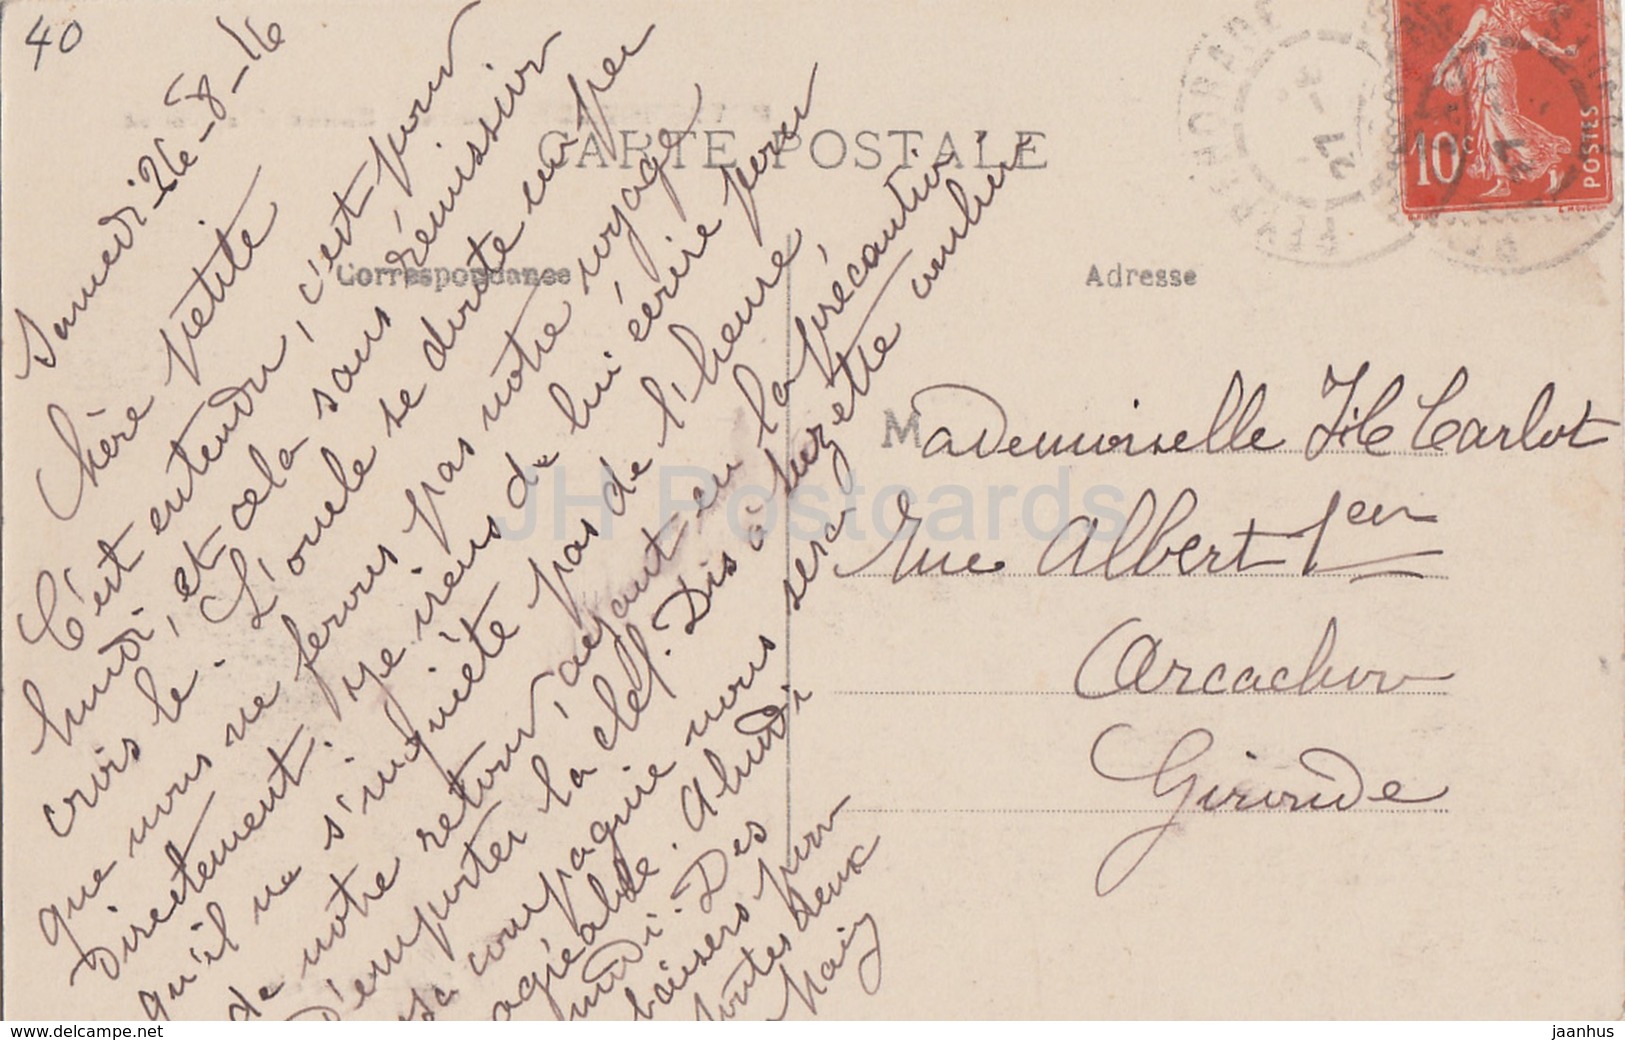 40
Samedi-26-8-16
Chère petite
C'est entendu, c'est pour
lundi, et cela sans rémission
crois le. L'oncle se doute un peu
que nous ne ferons pas notre voyage
directement. Je viens de lui écrire pour
qu'il ne s'inquiète pas de l'heure
de notre retour, ayant eu la précaution
d'emporter la clef. Dis à Suzette combien
sa compagnie nous sera
agréable. A lundi
midi. Des
baisers pour
toutes deux
CARTE POSTALE
Correspondance
Adresse
10c
POSTES
Mademoiselle Carlot
Rue Albert 1er
Arcachon
Gironde
JH Postcards
www.delcampe.net
jaanhus